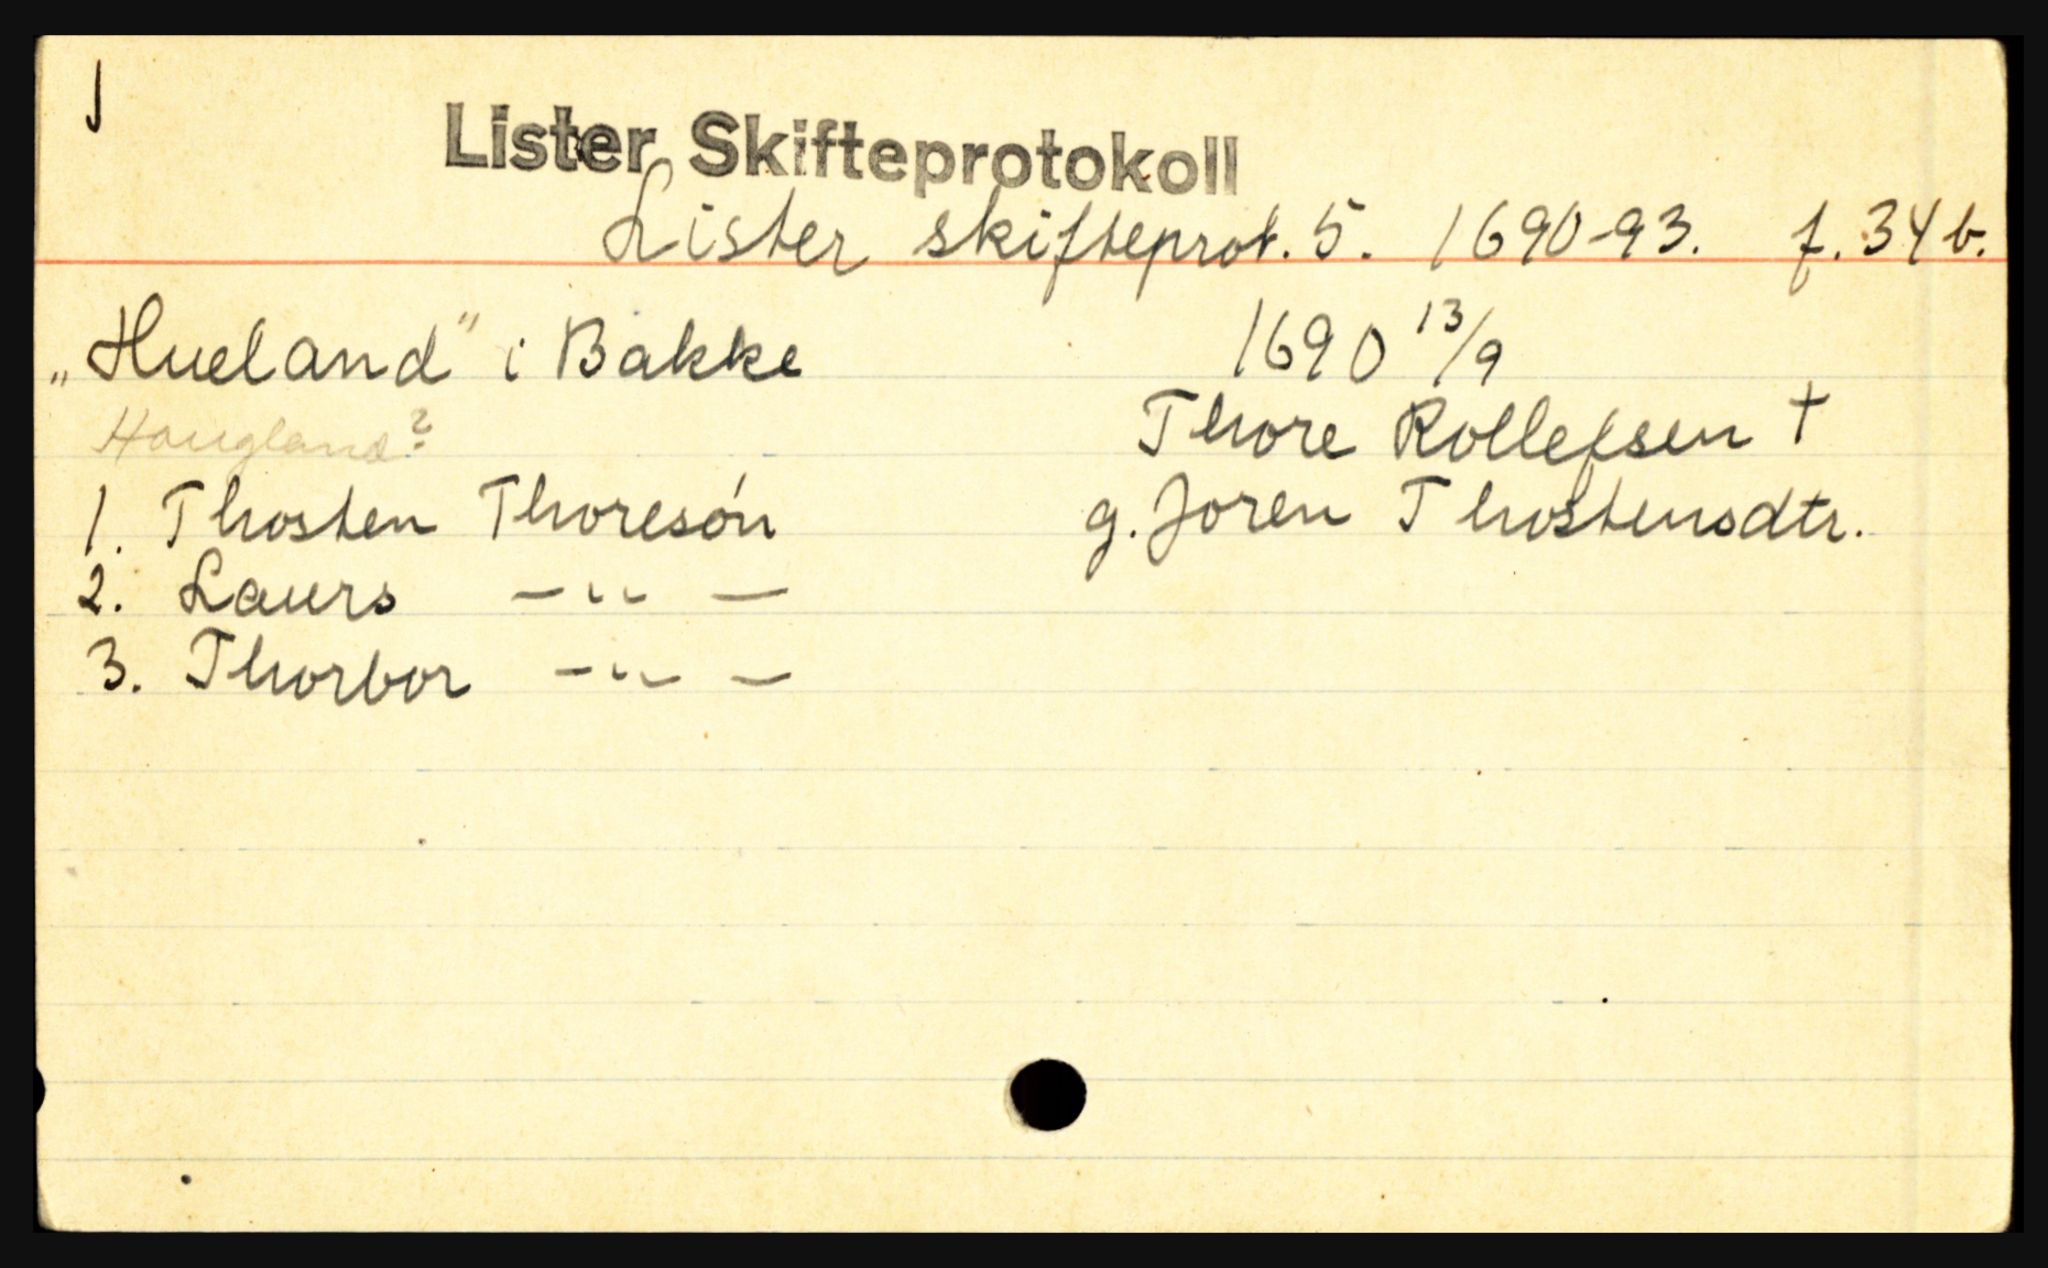 J
Lister Skifteprotokoll
Lister skifteprot. 5. 1690-93. f. 34 b.
„Hueland" i Bakke
Haugland?
1690 13/9
Thore Rollefsen †
g. Joren Thostensdtr.
1. Thosten Thoresón
2. Laurs — " —
3. Thorbor — " —